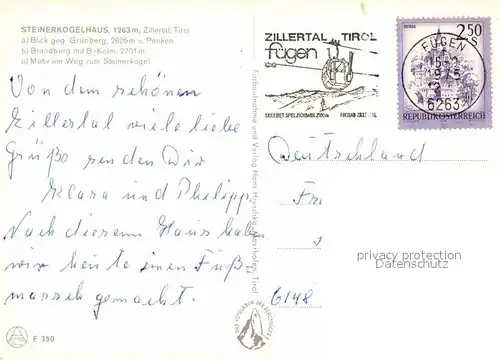 STEINERKOGELHAUS, 1263 m, Zillertal, Tirol
a) Blick geg. Grünberg, 2805 m u. Penken
b) Brandberg mit B.-Kolm, 2701 m
c) Motiv am Weg zum Steinerkogel
Von dem schönen
Zillertal viele liebe
Grüße senden Dir
Klara und Philipp.
Nach diesem Haus haben
wir heute einen Fuß-
marsch gemacht.
F 350
Farbaufnahme und Verlag Hans Hruschka, Mayrhofen, Tirol
ZILLERTAL TIROL
fügen
SKIGEBIET SPIELJOCHBAHN 2100m FREIBAD ZILLERTAL
FÜGEN
6263
2.50
S
REPUBLIK ÖSTERREICH
Deutschland
Fr
6148
privacy protection
Datenschutz